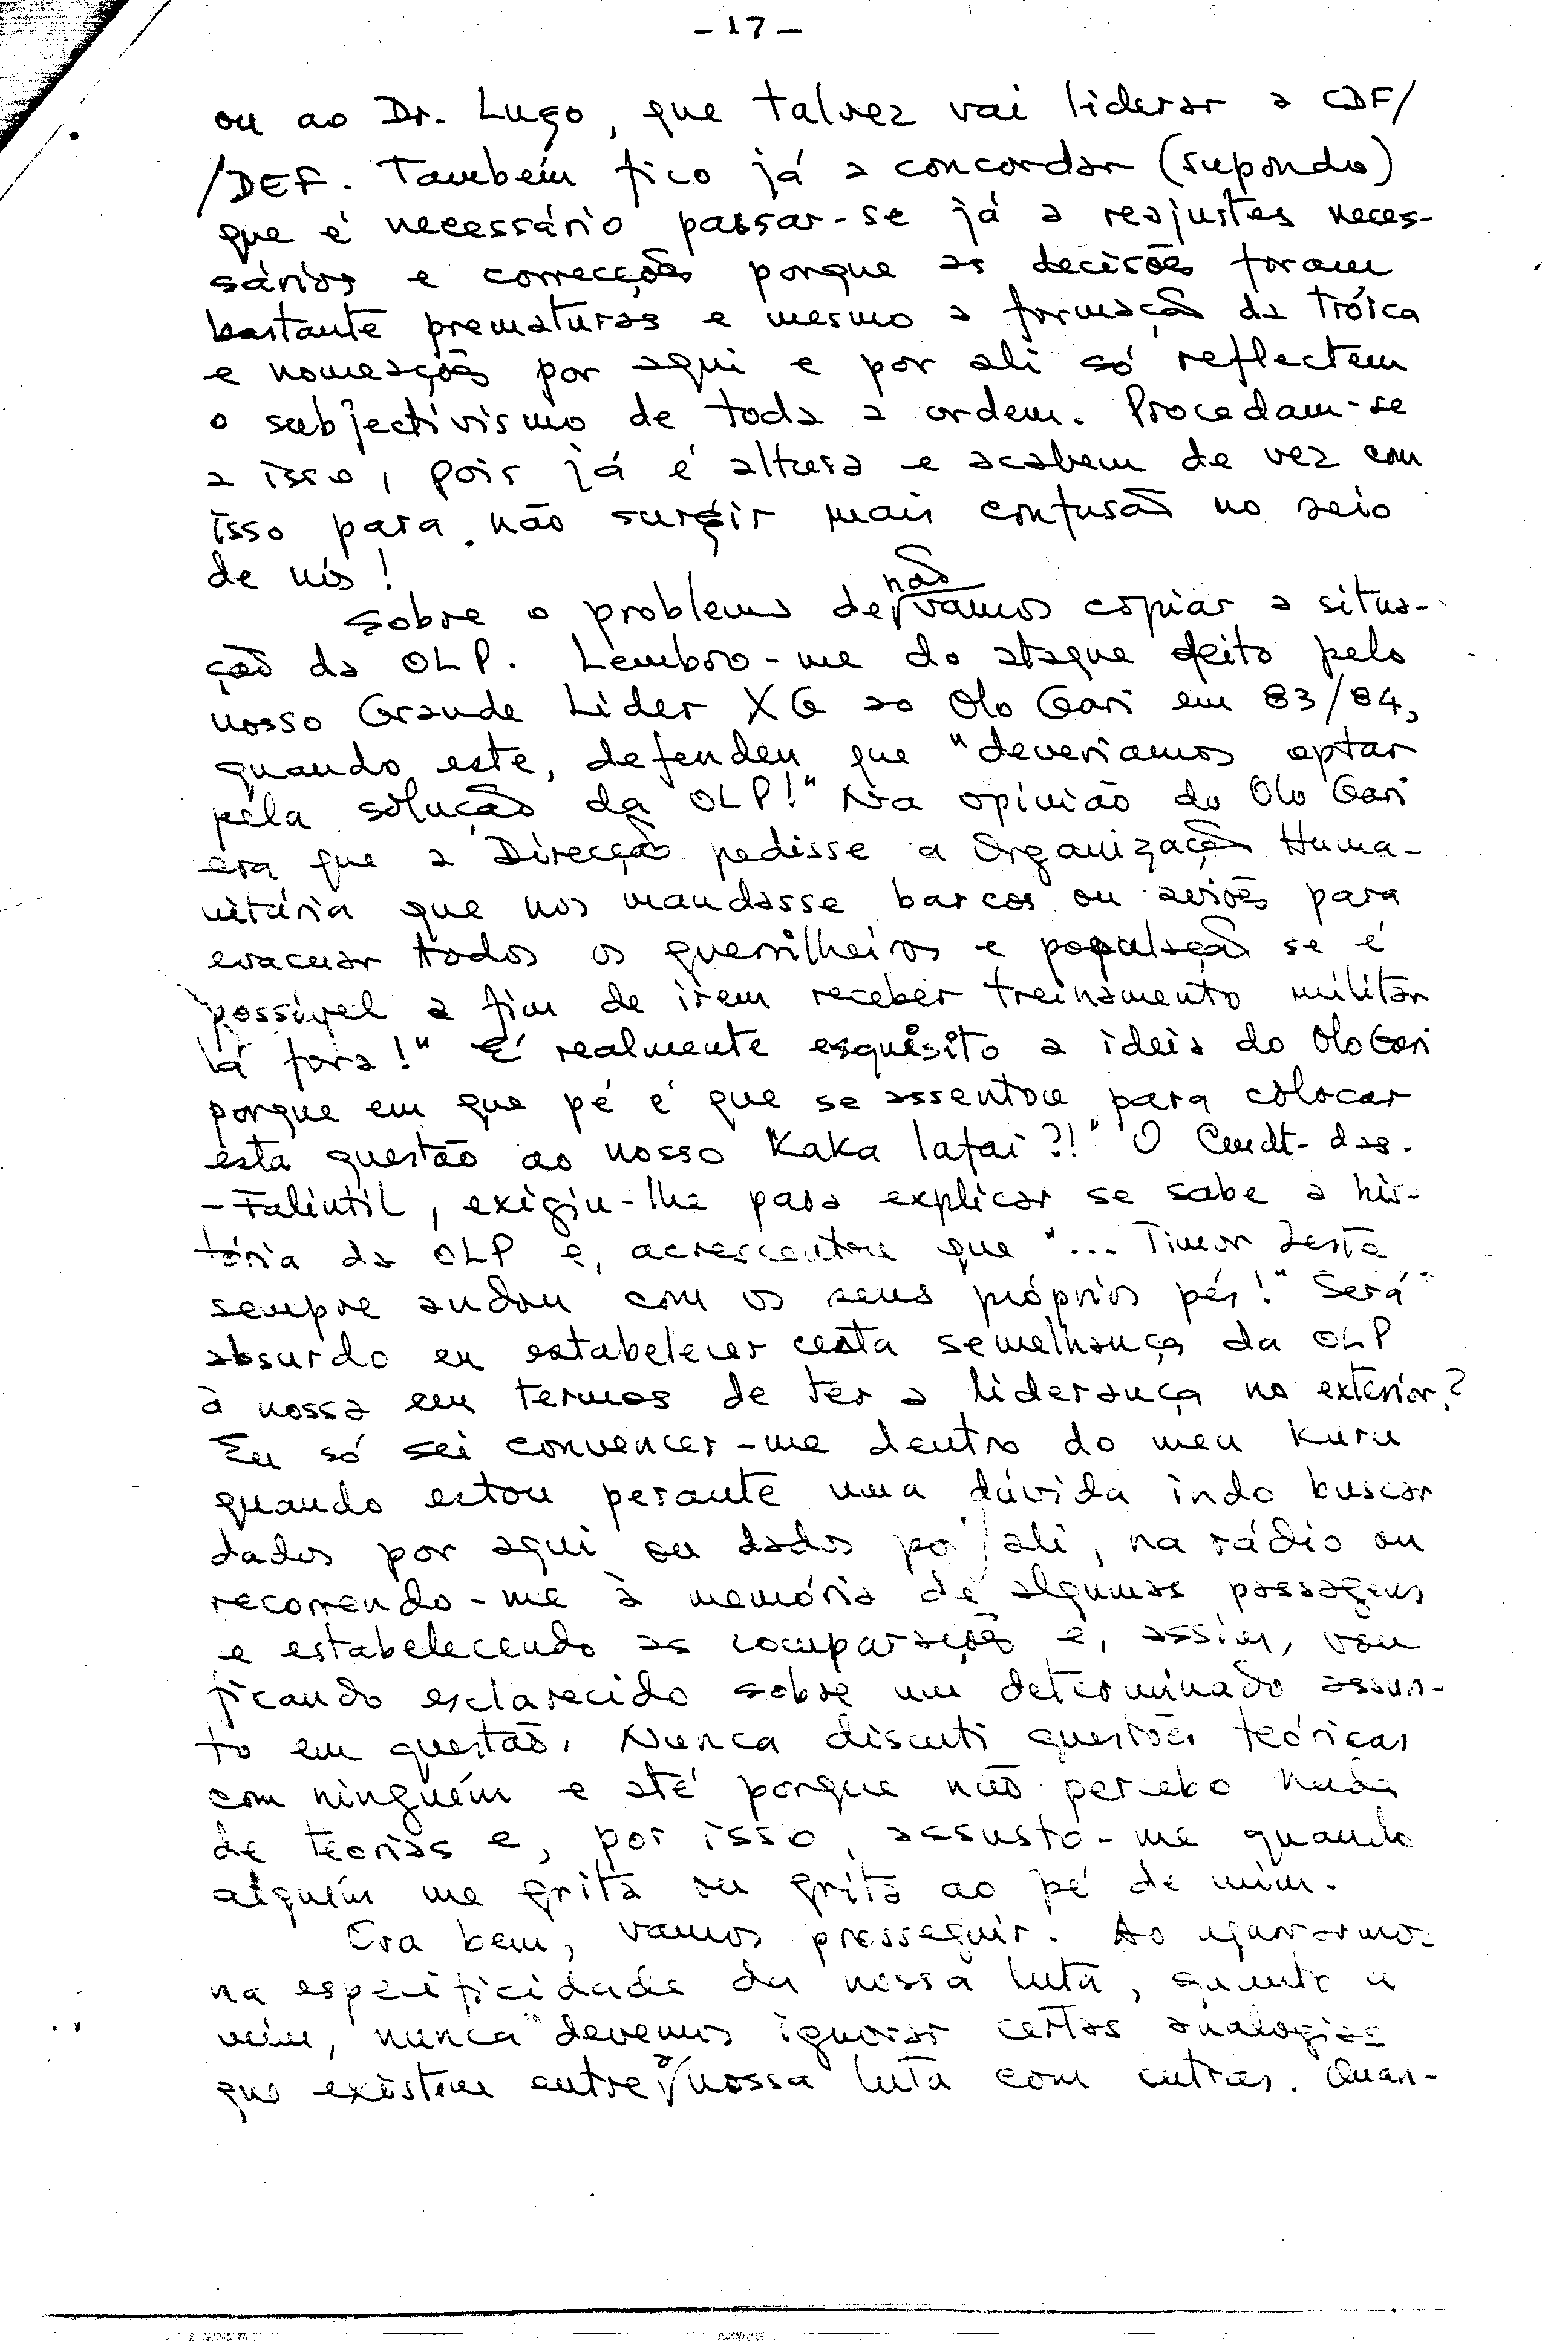 - 17 -
ou ao Dr. Lugo, que talvez vai liderar a CDF/
/DEF. Também fico já a concordar (supondo)
que é necessário passar-se já a reajustes neces-
sários e correcções porque as decisões foram
bastante prematuras e mesmo a formação da Tróica
e nomeações por aqui e por ali só reflectem
o subjectivismo de toda a ordem. Procedam-se
a isso, pois já é altura e acabem de vez com
isso para não surgir mais confusão no seio
de nós!
Sobre o problema de não vamos copiar a situa-
ção da OLP. Lembro-me do ataque feito pelo
nosso Grande Lider XG ao Olo Gari em 83/84,
quando este, defendeu que "deveriamos optar
pela solução da OLP!" Na opinião do Olo Gari
era que a Direcção pedisse a Organização Huma-
nitária que nos mandasse barcos ou aviões para
evacuar todos os guerrilheiros e população se é
possível a fim de irem receber treinamento militar
lá fora!" É realmente esquisito a ideia do Olo Gari
porque em que pé é que se assentou para colocar
esta questão ao nosso "Kaka lafai?!" O Cmdt- das.
-Falintil, exigiu-lhe para explicar se sabe a his-
tória da OLP e, acrescentou que "... Timor Leste
sempre andou com os seus próprios pés!" Será
absurdo eu estabelecer certa semelhança da OLP
à nossa em termos de ter a liderança no exterior?
Eu só sei convencer-me dentro do meu Kuru
quando estou perante uma dúvida indo buscar
dados por aqui ou dados por ali, na rádio ou
recorrendo-me à memória de algumas passagens
e estabelecendo as comparações e, assim, vou
ficando esclarecido sobre um determinado assun-
to em questão. Nunca discuti questões teóricas
com ninguém e até porque não percebo nada
de teorias e, por isso, assusto-me quando
alguém me grita ou grita ao pé de mim.
Ora bem, vamos prosseguir. Ao
na especificidade da nossa luta, quanto a
mim, nunca devemos ignorar certas analogias
que existem entre a nossa luta com outras. Quan-